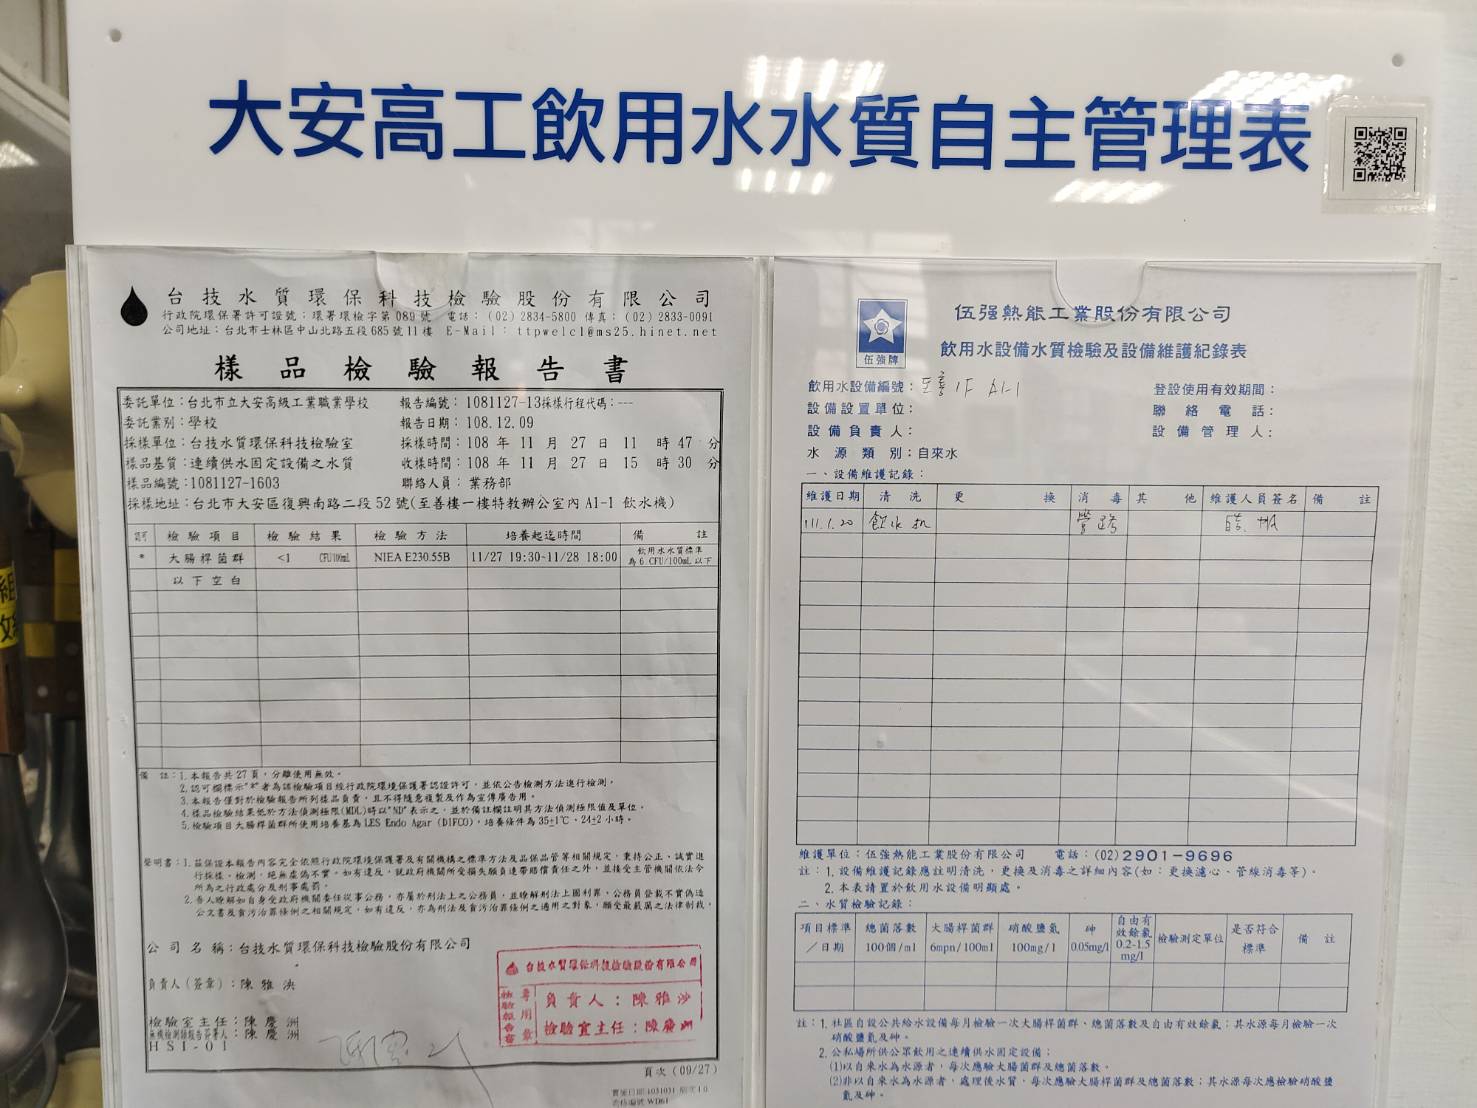 大安高工飲用水水質自主管理表
台技水質環保科技檢驗股份有限公司
行政院環保署許可證號：環署環檢字第 089 號 電話：(02) 2834-5800 傳真：(02) 2833-0091
公司地址：台北市士林區中山北路五段 685 號 11 樓 E-Mail： ttpwelcl@ms25.hinet.net
樣品檢驗報告書
委託單位：台北市立大安高級工業職業學校 報告編號：1081127-13採樣行程代碼：---
委託業別：學校 報告日期：108.12.09
採樣單位：台技水質環保科技檢驗室 採樣時間：108 年 11 月 27 日 11 時 47 分
樣品基質：連續供水固定設備之水質 收樣時間：108 年 11 月 27 日 15 時 30 分
樣品編號：1081127-1603 聯絡人員：業務部
採樣地址：台北市大安區復興南路二段 52 號(至善樓一樓特教辦公室內 A1-1 飲水機)
認可 檢驗項目 檢驗結果 檢驗方法 培養起迄時間 備註
* 大腸桿菌群 <1 CFU/100mL NIEA E230.55B 11/27 19:30~11/28 18:00 飲用水水質標準
為 6 CFU/100mL 以下
以下空白
備 註：1.本報告共 27 頁，分離使用無效。
2.認可欄標示"*"者為該檢驗項目經行政院環境保護署認證許可，並依公告檢測方法進行檢測。
3.本報告僅對於檢驗報告所列樣品負責，且不得隨意複製及作為宣傳廣告用。
4.樣品檢驗結果低於方法偵測極限(MDL)時以"ND"表示之，並於備註欄註明其方法偵測極限值及單位。
5.檢驗項目大腸桿菌群所使用培養基為 LES Endo Agar (DIFCO)，培養條件為 35±1℃、24±2 小時。
聲明書：1.茲保證本報告內容完全依照行政院環境保護署及有關機構之標準方法及品保品管等相關規定，秉持公正、誠實進
行採樣、檢測，絕無虛偽不實。如有違反，就政府機關所受損失願負連帶賠償責任之外，並接受主管機關依法令
所為之行政處分及刑事處罰。
2.吾人瞭解如自身受政府機關委任從事公務，亦屬於刑法上之公務員，並瞭解刑法上圖利罪、公務員登載不實偽造
公文書及貪污治罪條例之相關規定，如有違反，亦為刑法及貪污治罪條例之適用之對象，願受最嚴厲之法律制裁。
公司名稱：台技水質環保科技檢驗股份有限公司
負責人(簽章)：陳雅泱
檢驗室主任：陳慶洲
無機檢測類報告簽署人：陳慶洲
HSI-01
台技水質環保科技檢驗股份有限公司
檢驗報告書專用章
負責人：陳雅泱
檢驗室主任：陳慶洲
頁次 (09/27)
伍強牌
伍强熱能工業股份有限公司
飲用水設備水質檢驗及設備維護紀錄表
飲用水設備編號：至善 1F A1-1 登設使用有效期間：
設備設置單位： 聯絡電話：
設備負責人： 設備管理人：
水源類別：自來水
一、設備維護記錄：
維護日期 清洗 更換 消毒 其他 維護人員簽名 備註
111.1.20 飲水機 管路
維護單位：伍強熱能工業股份有限公司 電話：(02)2901-9696
註：1.設備維護記錄應註明清洗，更換及消毒之詳細內容(如：更換濾心、管線消毒等)。
2.本表請置於飲用水設備明顯處。
二、水質檢驗記錄：
項目標準／日期 總菌落數 100個/ml 大腸桿菌群 6mpn/100ml 硝酸鹽氮 100mg/l 砷 0.05mg/l 自由有效餘氯 0.2-1.5 mg/l 檢驗測定單位 是否符合標準 備註
註：1.社區自設公共給水設備每月檢驗一次大腸桿菌群、總菌落數及自由有效餘氯；其水源每月檢驗一次
硝酸鹽氮及砷。
2.公私場所供公眾飲用之連續供水固定設備：
(1)以自來水為水源者，每次應驗大腸菌群及總菌落數。
(2)非以自來水為水源者，處理後水質，每次應驗大腸桿菌群及總菌落數；其水源每次應檢驗硝酸鹽
氮及砷。